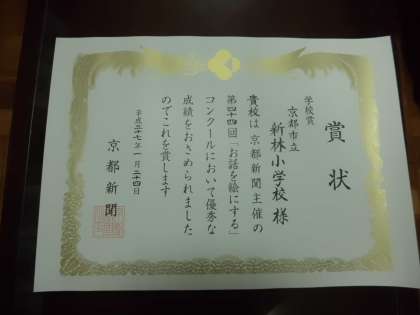 賞状
学校賞
京都市立
新林小学校様
貴校は京都新聞主催の
第四十四回「お話を絵にする」
コンクールにおいて優秀な
成績をおさめられました
のでこれを賞します
平成二十七年一月二十四日
京都新聞